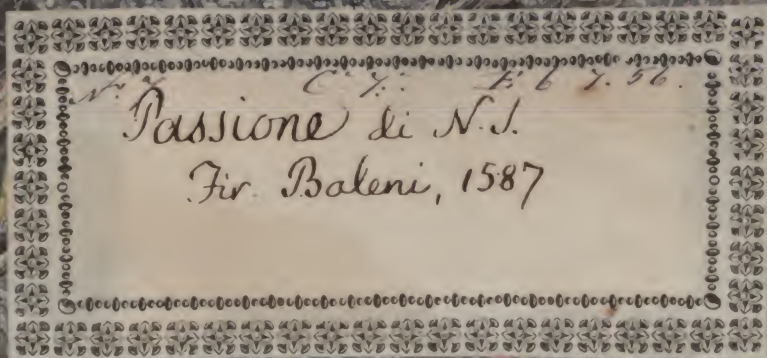 C. 7. E 6 7. 56.
Passione di N.S.
Fir. Baleni, 1587